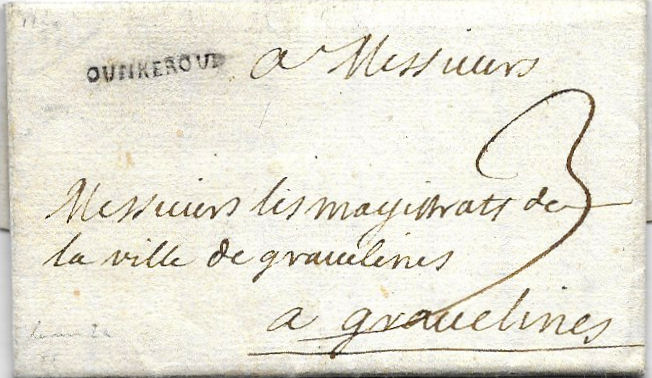 DUNKERQUE a Messieurs
3
Messieurs les magistrats de
la ville de gravelines
a gravelines